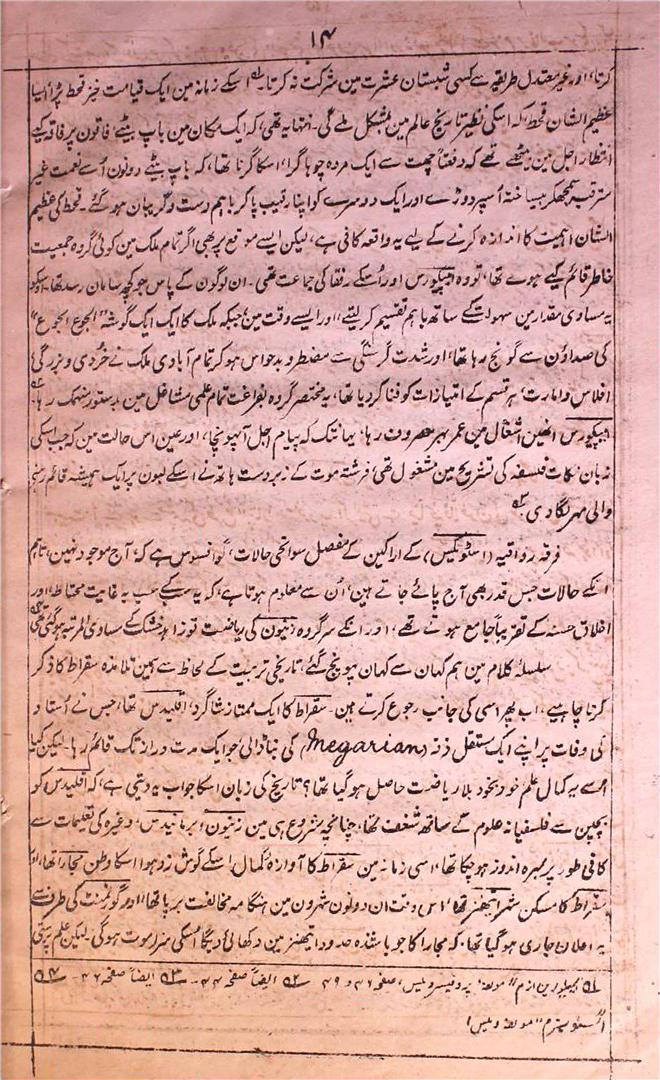 ۱۴
کرتا، اور غیر معتدل طریقہ سے کسی شبستان عشرت مین شرکت نہ کرتا۔ اسکے زمانہ مین ایک قیامت خیز قحط پڑا ایسا
عظیم الشان قحط، کہ اسکی نظیر تاریخ عالم مین بمشکل ملے گی۔ انتہا یہ تھی، کہ ایک مکان مین باپ بیٹے فاقون پر فاقہ کیے
انتظار اجل مین بیٹھے تھے کہ دفعتاً چھت سے ایک مردہ چوہا گرا، اسکا گرنا تھا، کہ باپ بیٹے دونون اُسے نعمت غیر
مترقبہ سمجھکر بیساختہ اُسپر دوڑے اور ایک دوسرے کو اپنا رقیب پاکر باہم دست و گریبان ہوگئے۔ قحط کی عظیم
الشان اہمیت کا اندازہ کرنے کے لیے یہ واقعہ کافی ہے، لیکن ایسے موقع پر بھی اگر تمام ملک مین کوئی گروہ جمعیت
خاطر قائم کیے ہوے تھا، تو وہ اپیکیورس اور اُسکے رفقا کی جماعت تھی۔ ان لوگون کے پاس جو کچھ سامان رسد تھا۔ اوسکو
یہ مساوی مقدار مین سہولت کے ساتھ باہم تقسیم کرلیتے، اور ایسے وقت مین، جبکہ ملک کا ایک ایک گوشہ "الجوع الجوع"
کی صداؤن سے گونج رہا تھا، اور شدت گرسنگی سے مضطر و بدحواس ہوکر تمام آبادی ملک نے خُردی و بزرگی
افلاس و امارت، ہر قسم کے امتیازات کو فنا کردیا تھا، یہ مختصر گروہ بفراغت تمام علمی مشاغل مین بدستور منہمک رہا۔
اپیکیورس انھین اشغال مین عمر بھر مصروف رہا، یہانتک کہ پیام اجل آپہونچا، اور عین اس حالت مین کہ جب اسکی
زبان نکات فلسفہ کی تشریح مین مشغول تھی، فرشتہ موت کے زبردست ہاتھ نے اسکے لبون پر ایک ہمیشہ قائم رہنے
والی مہر لگادی۔
فرقہ رواقیہ (اسٹوئکس) کے اراکین کے مفصل سوانحی حالات، گو افسوس ہے کہ، آج موجود نہین، تاہم
انکے حالات جس قدر بھی آج پائے جاتے ہین، اُن سے معلوم ہوتا ہے، کہ یہ سب کے سب بہ غایت محتاط، اور
اخلاق حسنہ کے تقریباً جامع ہوتے تھے، اور انکے سرگروہ زینون کی ریاضت تو زاہد خشک کے مساوی المرتبہ ہوگئی تھی
سلسلہ کلام مین ہم کہان سے کہان پہونچ گئے، تاریخی ترتیب کے لحاظ سے ہمین تلامذہ سقراط کا ذکر
کرنا چاہیے، اب پھر اسی کی جانب رجوع کرتے ہین۔ سقراط کا ایک ممتاز شاگرد، اقلیدس تھا، جس نے اُستاد
کی وفات پر اپنے ایک مستقل فرقہ (Megarian) کی بنا ڈالی، جو ایک مدت دراز تک قائم رہا۔ لیکن کیا
اسے یہ کمال علم خودبخود بلا ریاضت حاصل ہوگیا تھا؟ تاریخ کی زبان اسکا جواب یہ دیتی ہے، کہ اقلیدس کو
بچپن سے فلسفیانہ علوم کے ساتھ شغف تھا، چنانچہ شروع ہی مین زینون، پرمانیدس، وغیرہ کی تعلیمات سے
کافی طور پر بہرہ اندوز ہوچکا تھا، اسی زمانہ مین سقراط کا آوازہ کمال، اسکے گوش زد ہوا۔ اسکا وطن مجارا تھا، اور
سقراط کا مسکن شہر ایتھنز تھا، اس وقت ان دونون شہرون مین ہنگامہ مخالفت برپا تھا، اور گورنمنٹ کی طرف سے
یہ اعلان جاری ہوگیا تھا، کہ مجارا کا جو باشندہ حدود ایتھنز مین دکھائی دیگا اسکی سزا موت ہوگی۔ لیکن علم پرستی
۵۱ اپیکیورین ازم "مولفہ" پروفیسر ویلس، صفحہ ۴۶ و ۴۹ ۵۲ ایضاً صفحہ ۴۴۔ ۵۳ ایضاً صفحہ ۴۶۔ ۵۴
"اسٹوئیسزم" مولفہ ویلس)